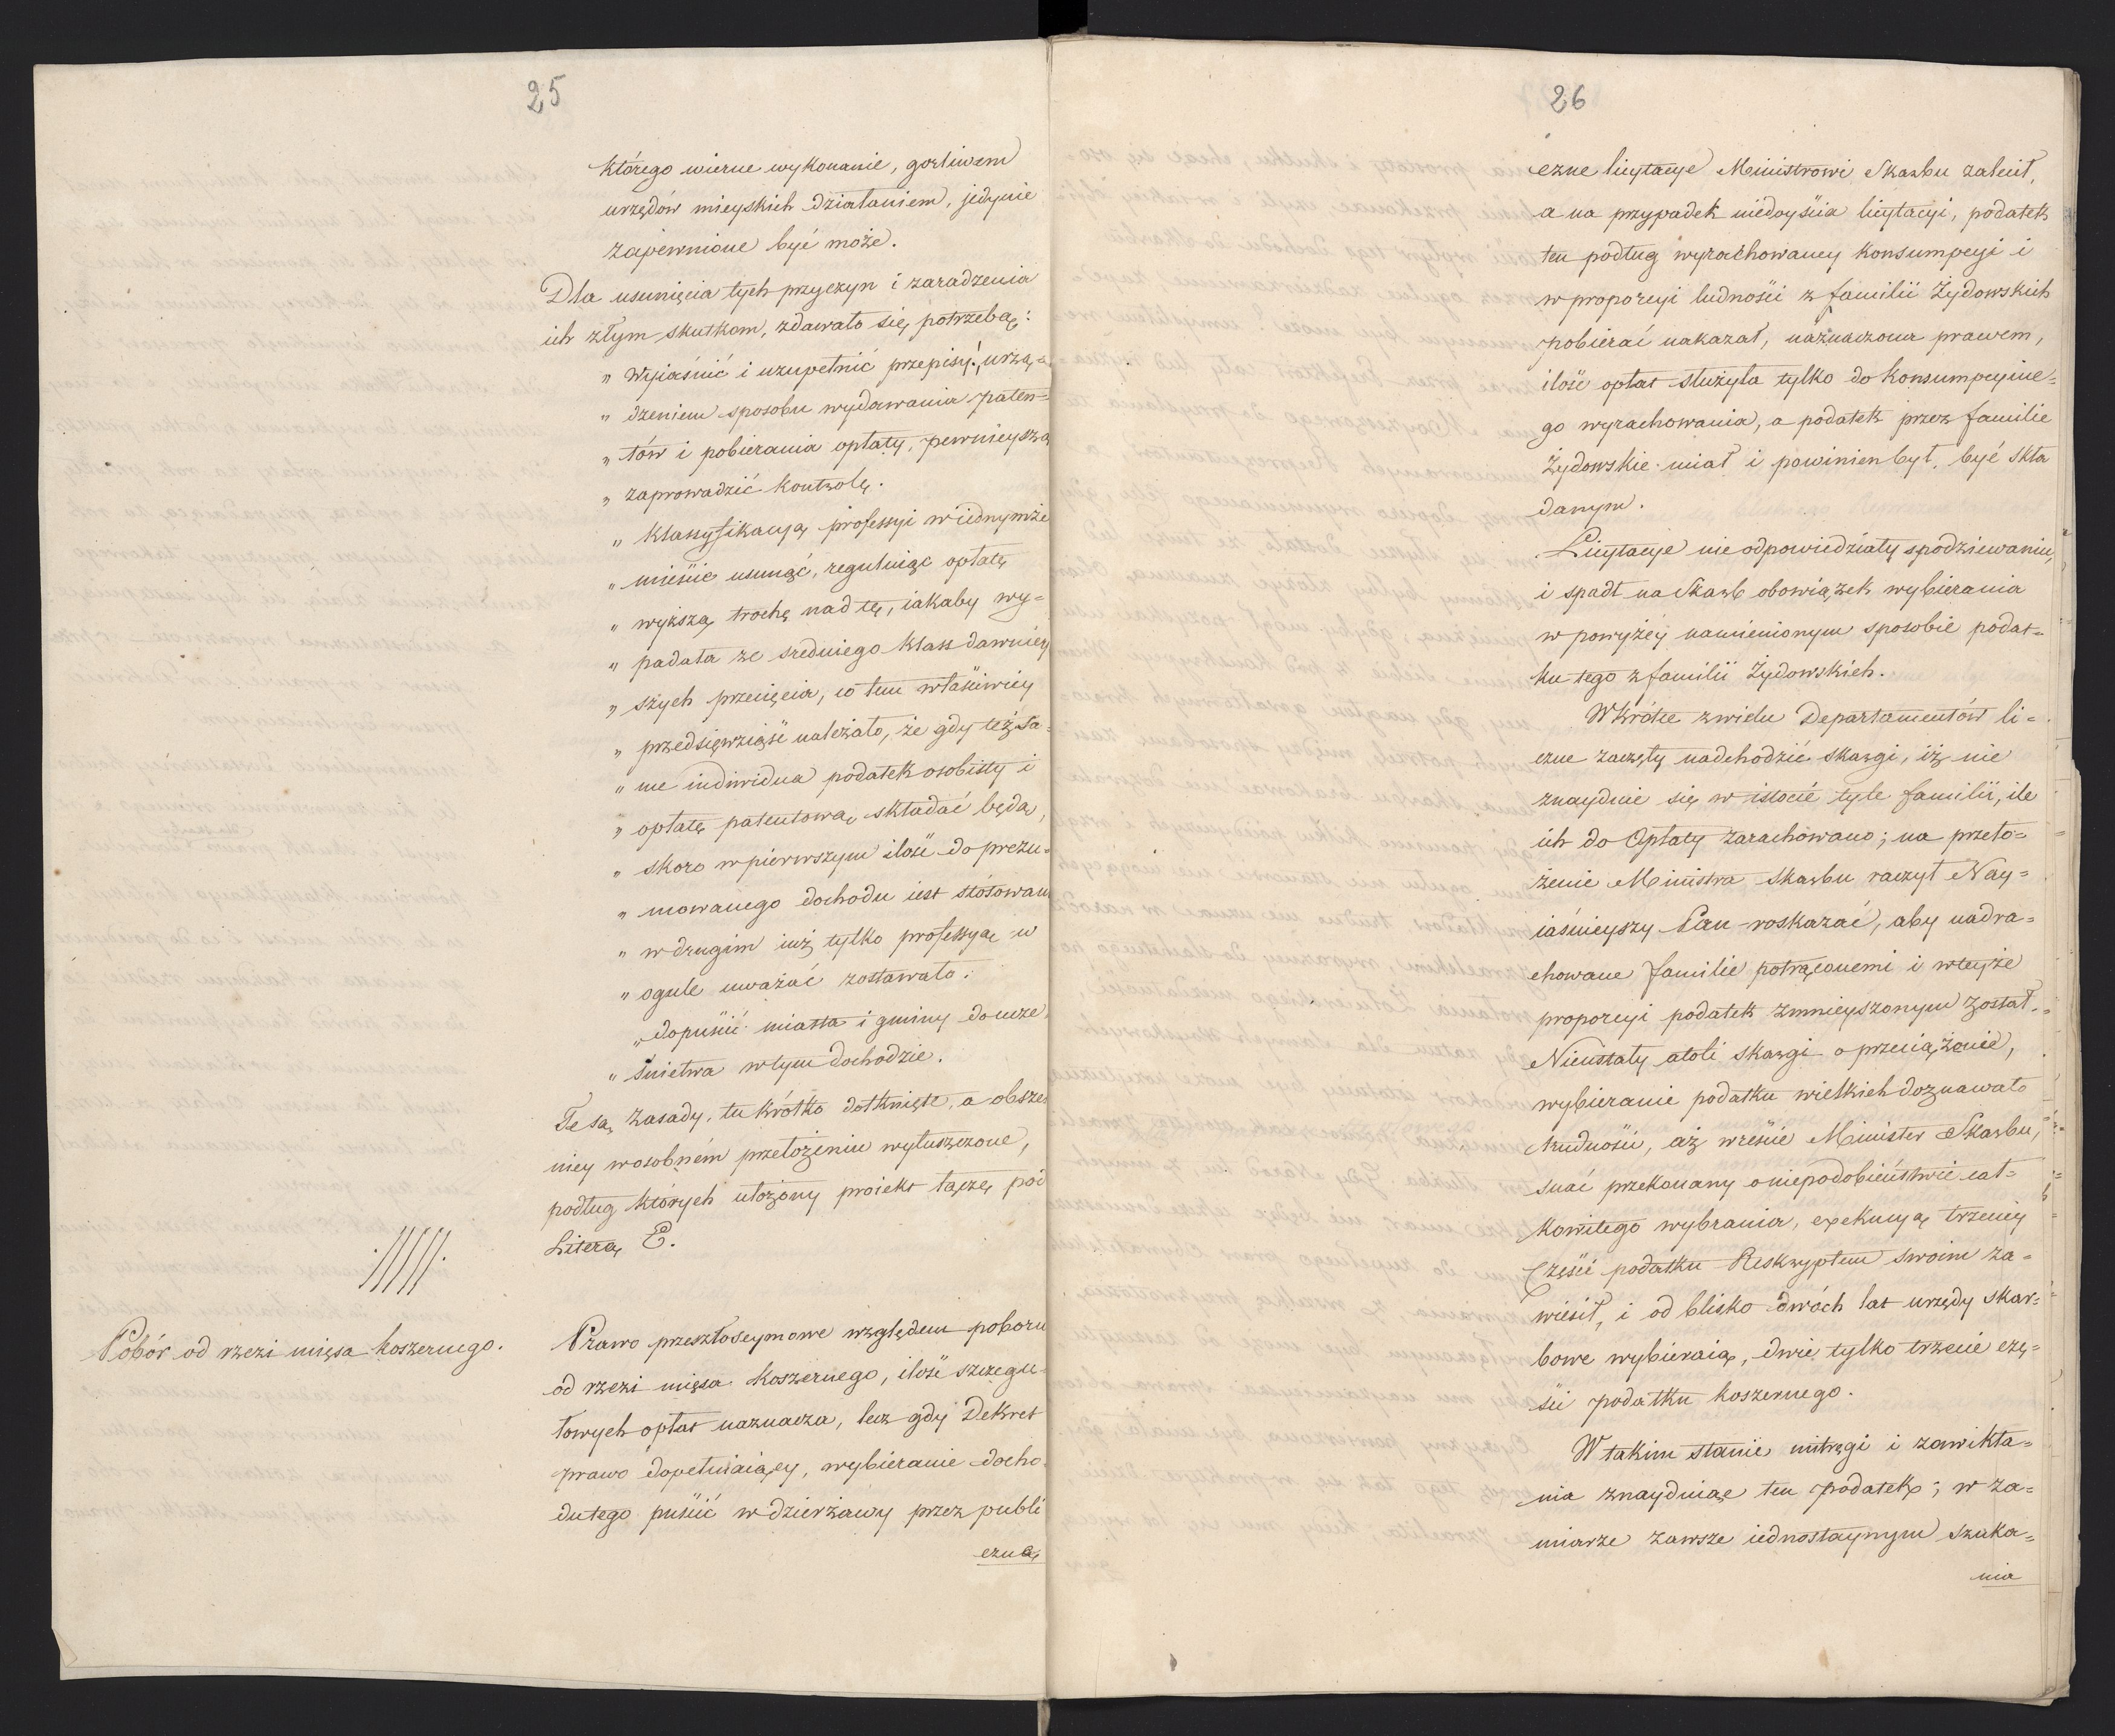 25
którego wierne wykonanie, gorliwem
urzędów mieyskich działaniem, jedynie
zapewnione być może.
Dla usunięcia tych przyczyn i zaradzenia
ich złym skutkom, zdawało się potrzebą:
„ Wyiaśnić i uzupełnić przepisy, urzą-
„ dzeniem sposobu wydawania paten=
„ tów i pobierania opłaty, pewnieyszą
„ zaprowadzić kontrolę.
„ Klassyfikacyą professyi w iednymże
„ mieście usunąć, reguluiąc opłatę
„ wyższą trochę nad tę, iakaby wy=
„ padała ze sredniego klass dawniey
„ szych przecięcia, co tem właściwiey
„ przedsięwziąść należało, że gdy też sa=
„ me indiwidua podatek osobisty i
„ opłatę patentową składać będą,
„ skoro w pierwszym ilość do prezu=
„ mowanego dochodu iest stósowaną
„ w drugim iuż tylko professyą w
„ ogule uważać zostawało.
„ dopuścić miasta i gminy do ucze
„ śnictwa w tym dochodzie.
Te są zasady, tu krótko dotknięte, a obszer
niey w osobnem przełożeniu wyłuszczone,
podług których ułożony proiekt łączę pod
Literą E.
Pobór od rzezi mięsa koszernego.
Prawo przeszłoseymowe względem poboru
od rzezi mięsa koszernego, ilość szczegu-
łowych opłat naznacza, lecz gdy Dekret
prawo dopełniaiący, wybieranie docho
du tego puścić w dzierżawy przez publi
czną
26
czne licytacye Ministrowi Skarbu zalecił,
a na przypadek niedoyścia licytacyi, podatek
ten podług wyrachowaney konsumpcyi i
w proporcyi ludności z familii Żydowskich
pobierać nakazał, naznaczona prawem,
ilość opłat służyła tylko do konsumpcyine=
go wyrachowania, a podatek przez familie
Żydowskie miał i powinien był, być skła
danym.
Licytacye nie odpowiedziały spodziewaniu,
i spadł na Skarb obowiązek wybierania
w powyżéy namienionym sposobie podat=
ku tego z familii Żydowskich.
Wkrótce z wielu Departamentów li=
czne zaczęły nadchodzić skargi, iż nie
znayduie się w istocie tyle familii, ile
ich do Opłaty zarachowano; na przeło=
żenie Ministra Skarbu raczył Nay=
iaśnieyszy Pan roskazać, aby nadra=
chowane familie potrąconemi i w teyże
proporcyi podatek zmnieyszonym został.
Nieustały atoli skargi o przeciążenie,
wybieranie podatku wielkich doznawało
trudności, aż wreście Minister Skarbu,
snać przekonany o niepodobieństwie cał=
kowitego wybrania, exekucyą trzeciey
Części podatku Reskryptem swoim za=
wiesił, i od blisko dwóch lat urzędy skar=
bowe wybieraią, dwie tylko trzecie czę=
ści podatku koszernego.
W takim stanie mitręgi i zawikła=
nia znayduiąc ten podatek; w za=
miarze zawsze iednostaynym szuka=
nia